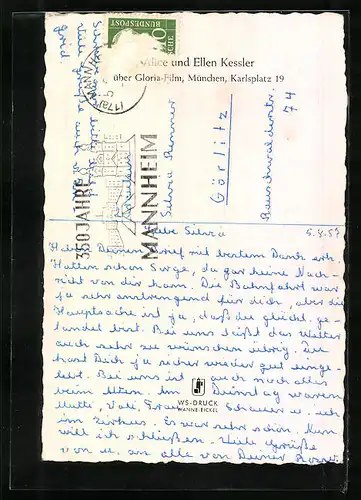 Alice und Ellen Kessler
über Gloria-Film, München, Karlsplatz 19
BUNDESPOST
(17a) MANNHEIM
350 JAHRE
MANNHEIM
Görlitz
74
Liebe Silvia
5.4.57
Habe Deinen Brief mit bestem Dank erh.
Hatten schon Sorge, da gar keine Nach-
richt von dir kam. Die Bahnfahrt war
ja sehr anstrengend für dich, aber die
Hauptsache ist ja, daß du glückl. ge-
landet bist. Bei uns läßt das Wetter
auch sehr zu wünschen übrig. Du
hast Dich ja sicher wieder gut einge-
lebt. Bei uns ist auch noch alles
beim Alten. Am Dienstag waren
Mutti, Vati, Frau Schauer u. ich
im Zirkus. Es war sehr schön. Nun
will ich schließen. Viele Grüße
von u. an alle von Deiner
WS-DRUCK
WANNE-EICKEL